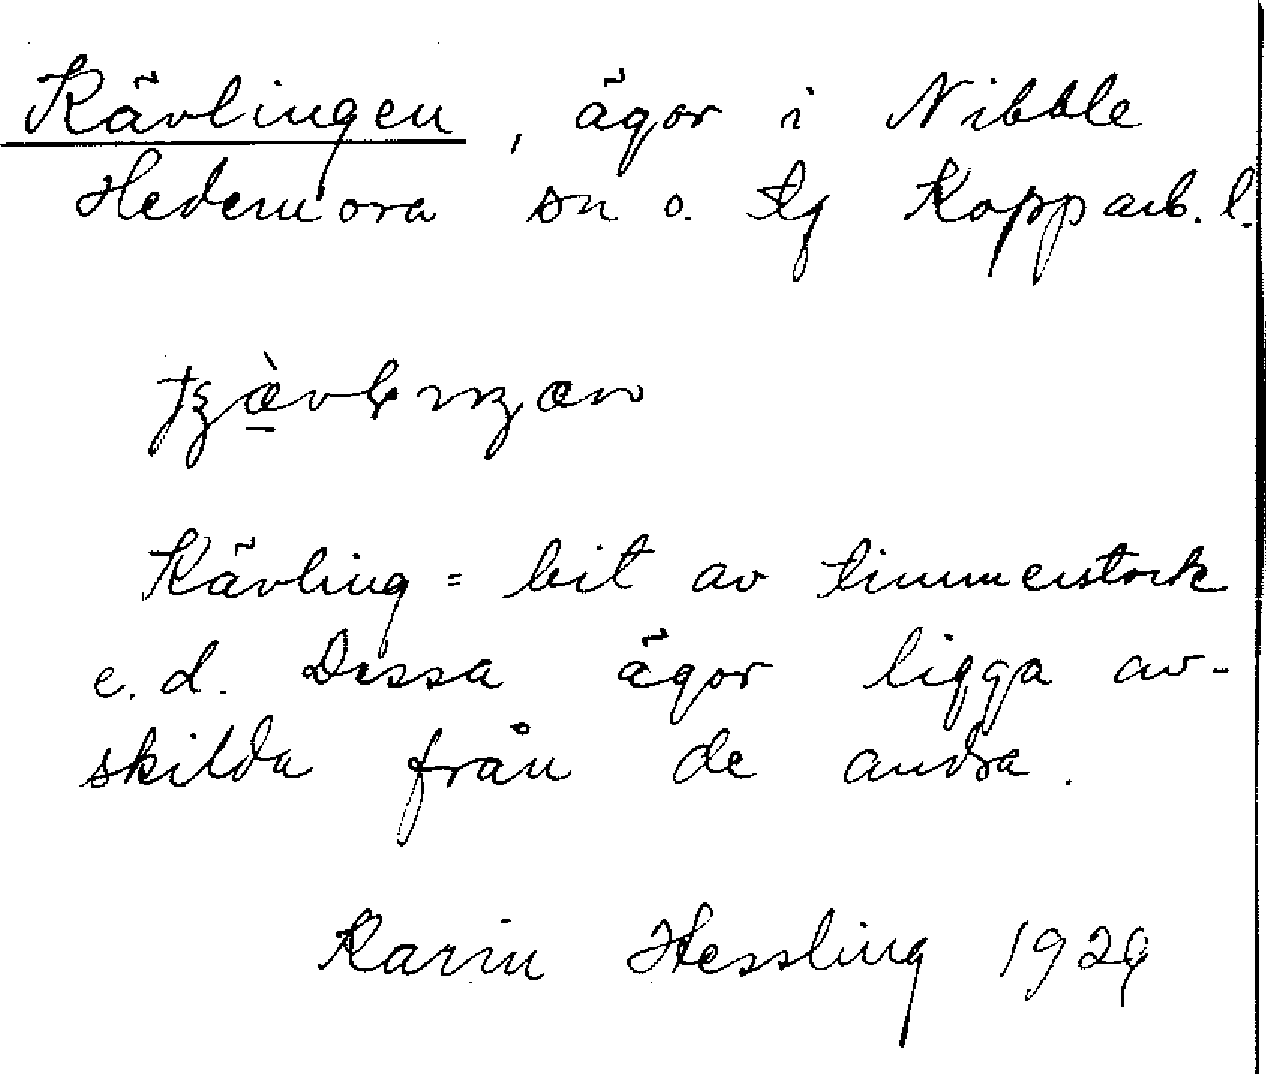 Kävlingen, ägor i Nibble
Hedemora sn o. tg Kopparb. l.
Kävling = bit av timmerstock
e. d. Dessa ägor ligga av-
skilda från de andra.
Karin Hessling 1929